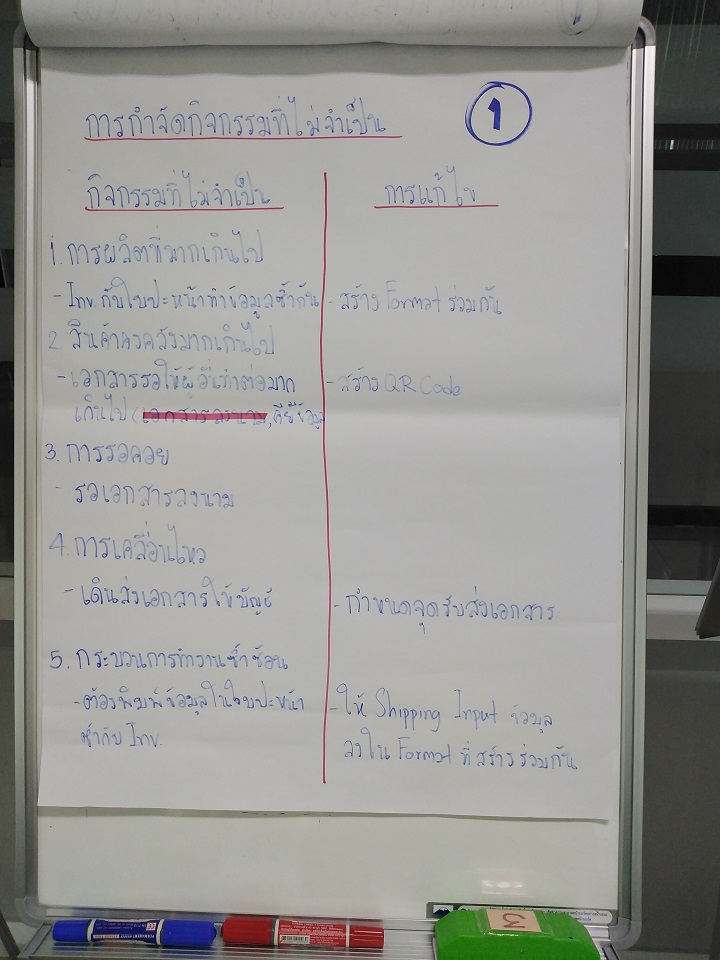 1
การกำจัดกิจกรรมที่ไม่จำเป็น
กิจกรรมที่ไม่จำเป็น
การแก้ไข
1. การผลิตที่มากเกินไป
- Inv. กับใบปะหน้าทำข้อมูลซ้ำกัน
- สร้าง Format ร่วมกัน
2. สินค้าคงคลังมากเกินไป
- เอกสารรอให้ผู้อื่นทำต่อมาก
เกินไป (เอกสารลงนาม, คีย์ข้อมูล
- สร้าง QR Code
3. การรอคอย
- รอเอกสารลงนาม
4. การเคลื่อนไหว
- เดินส่งเอกสารให้บัญชี
- กำหนดจุดรับส่งเอกสาร
5. กระบวนการทำงานซ้ำซ้อน
- ต้องพิมพ์ข้อมูลในใบปะหน้า
ซ้ำกับ Inv.
- ให้ Shipping Input ข้อมูล
ลงใน Format ที่สร้างร่วมกัน
3